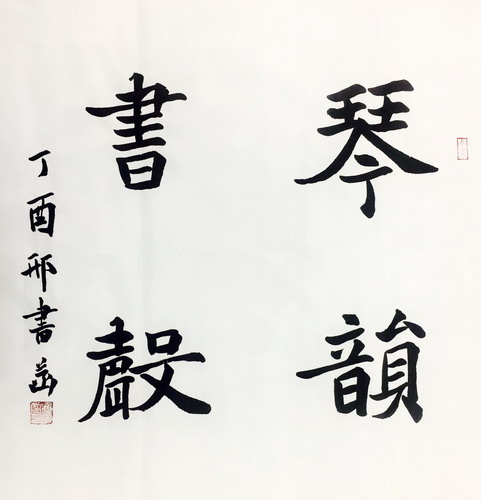 琴韻
書聲
丁酉邢書菡